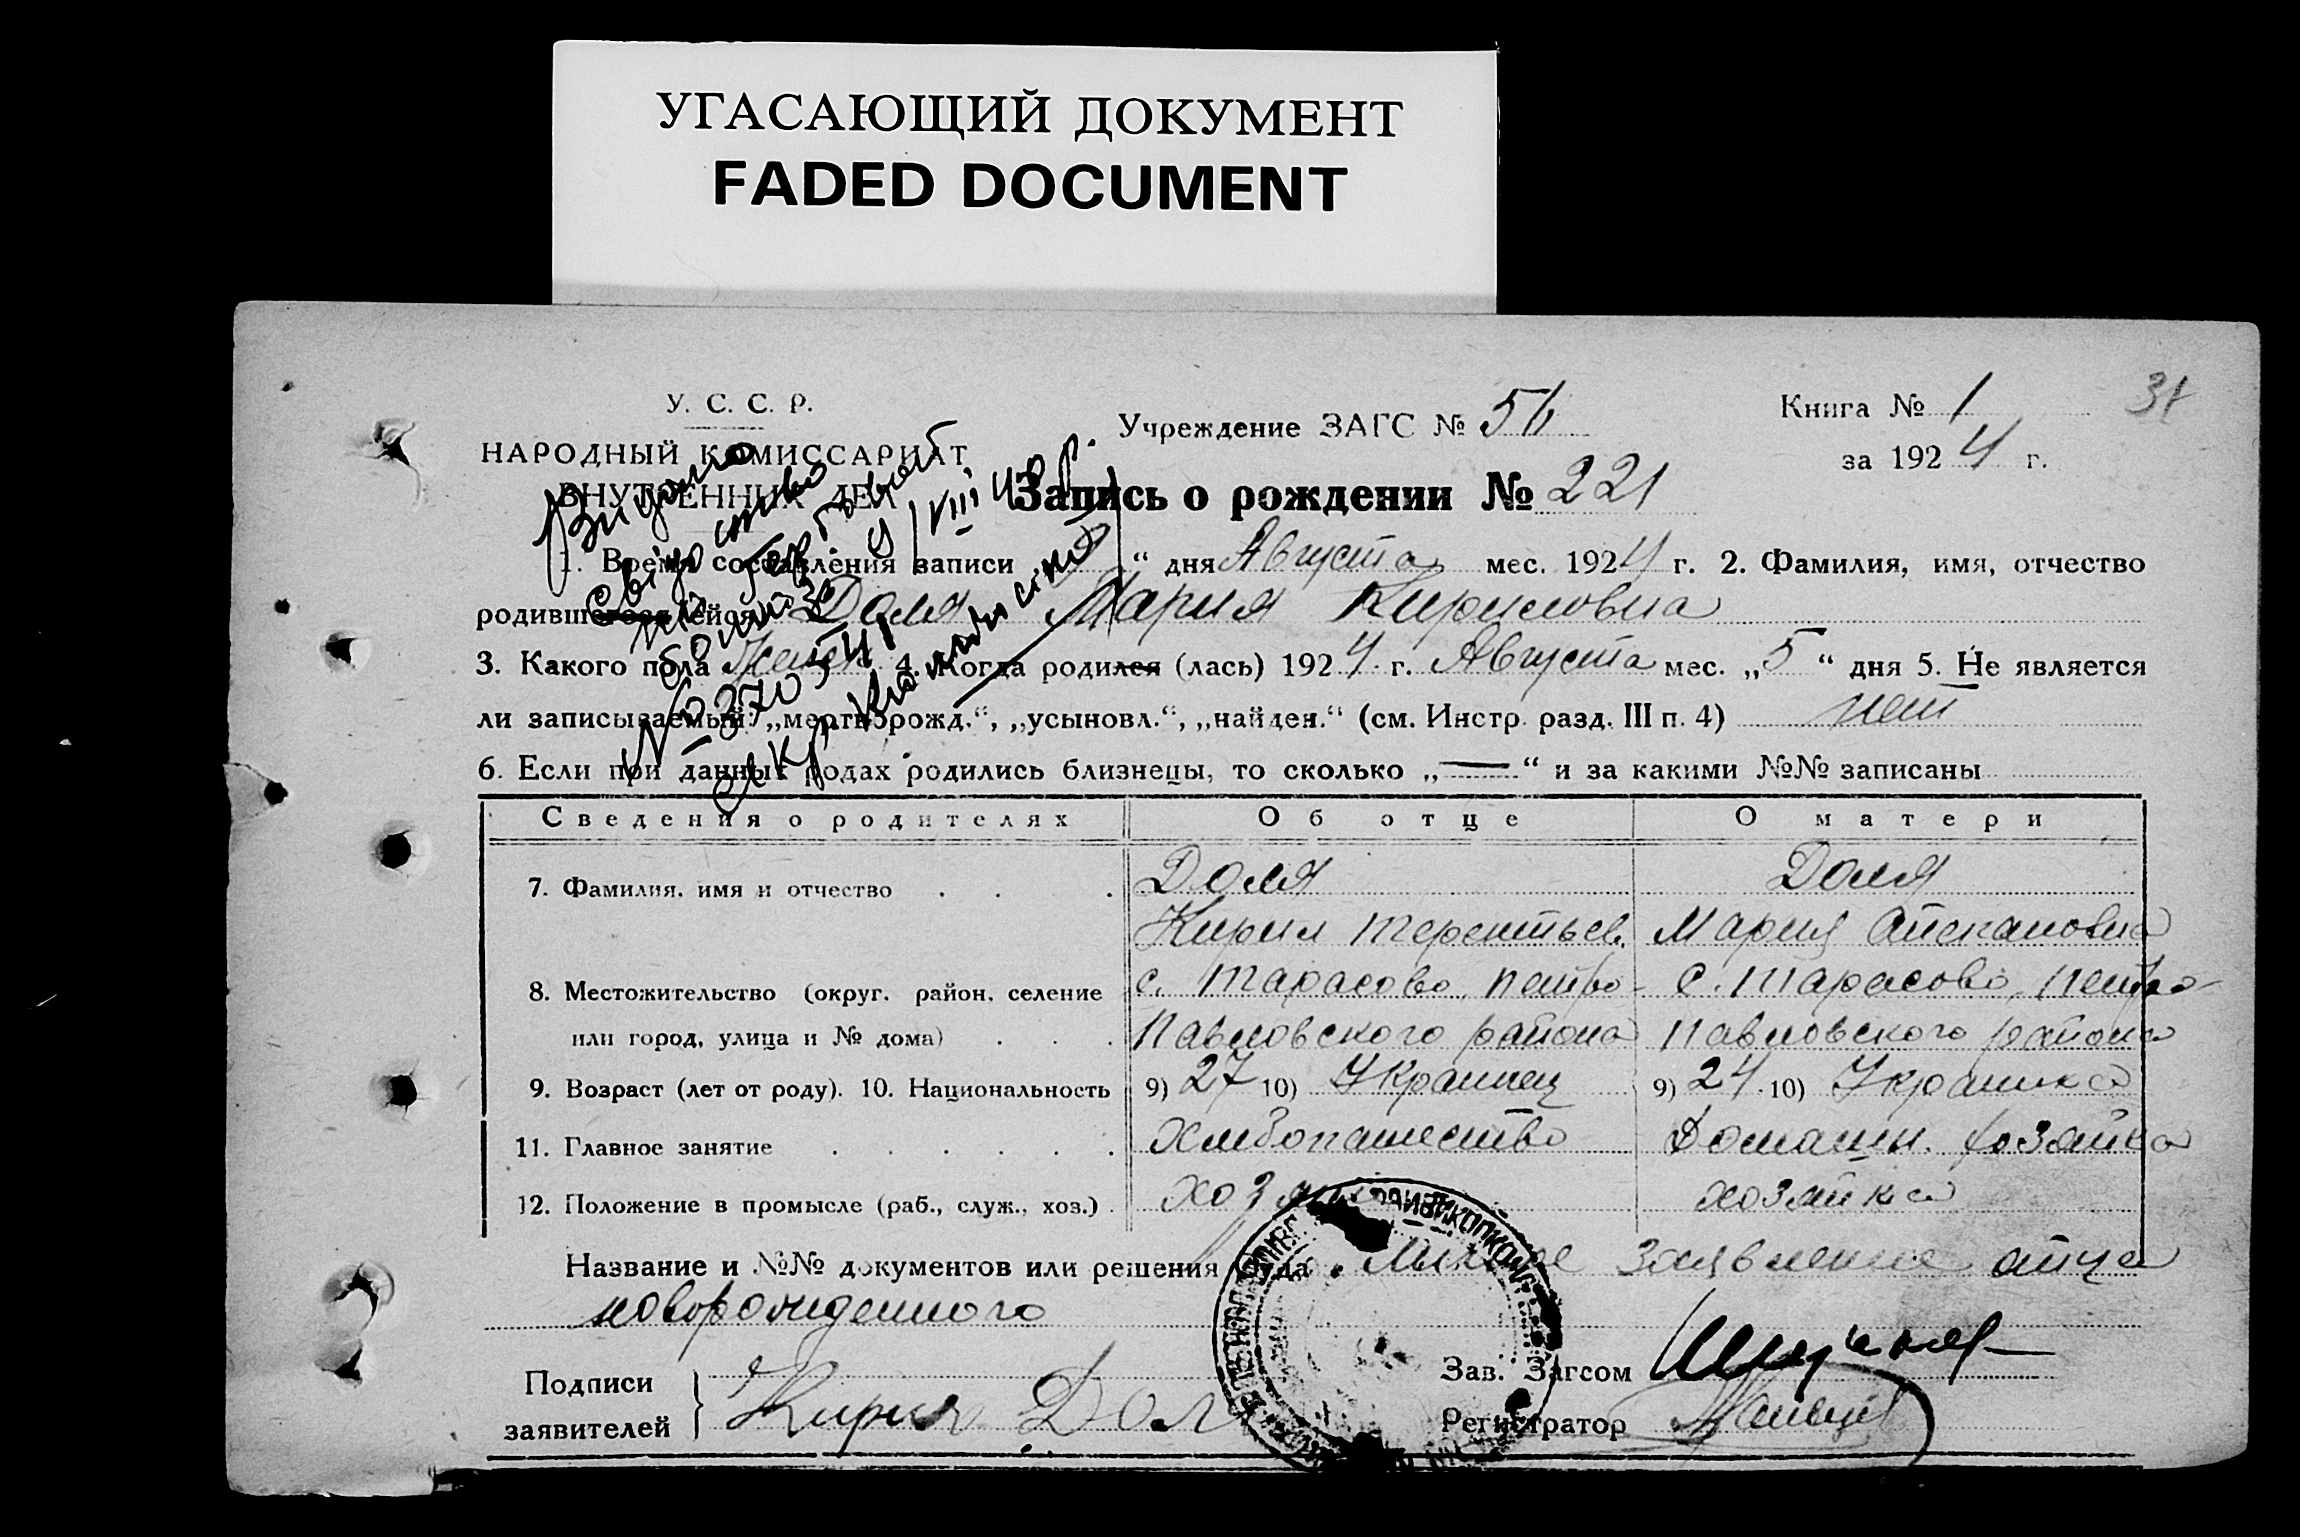 УГАСАЮЩИЙ ДОКУМЕНТ
FADED DOCUMENT
У. С. С. Р.
НАРОДНЫЙ КОМИССАРИАТ
ВНУТРЕННИХ ДЕЛ
Учреждение ЗАГС № 56
Книга № 1
за 1924 г.
Запись о рождении № 221
Видано
1. Время составления записи „ “ дня Августа мес. 1924 г. 2. Фамилия, имя, отчество
родившегося (ейся) Доля Мария Кириловна
3. Какого пола Женск. 4. Когда родился (лась) 1924 г. Августа мес. „5“ дня 5. Не является
ли записываемый: „мертворожд.“, „усыновл.“, „найден.“ (см. Инстр. разд. III п. 4) нет
6. Если при данных родах родились близнецы, то сколько „—“ и за какими №№ записаны
Сведения о родителях Об отце О матери
7. Фамилия, имя и отчество Доля Доля
Кирил Терентьев. Мария
8. Местожительство (округ, район, селение с. Тарасово, Петро- с. Тарасово, Петро-
или город, улица и № дома) Павловского района Павловского района
9. Возраст (лет от роду). 10. Национальность 9) 27 10) Украинец 9) 24 10) Украинка
11. Главное занятие Хлебопашество Домашн. хозяйка
12. Положение в промысле (раб., служ., хоз.) хозяин хозяйка
Название и №№ документов или решения суда Личное заявление отца
новорожденного
Подписи
заявителей Кирил Дол
Зав. Загсом
Регистратор